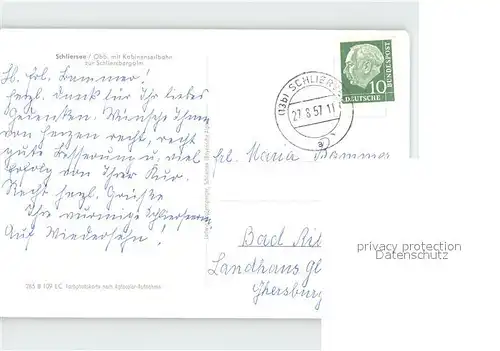 Schliersee / Obb. mit Kabinenseilbahn
zur Schliersbergalm
Lb. Frl. Kammerer!
Herzl. Dank für Ihr liebes
Gedenken. Wünsche Ihnen
von Herzen recht, recht
gute Besserung u. viel
Erfolg von Ihrer Kur.
Recht herzl. Grüße
Ihre
Auf Wiedersehn!
265 B 109 E.C. Farbphotokarte nach Agfacolor-Aufnahme
(13b) SCHLIER
27.8.57.11
a
10
DEUTSCHE
BUNDESPOST
Frl. Maria
Bad
Landhaus Gl
privacy protection
Datenschutz